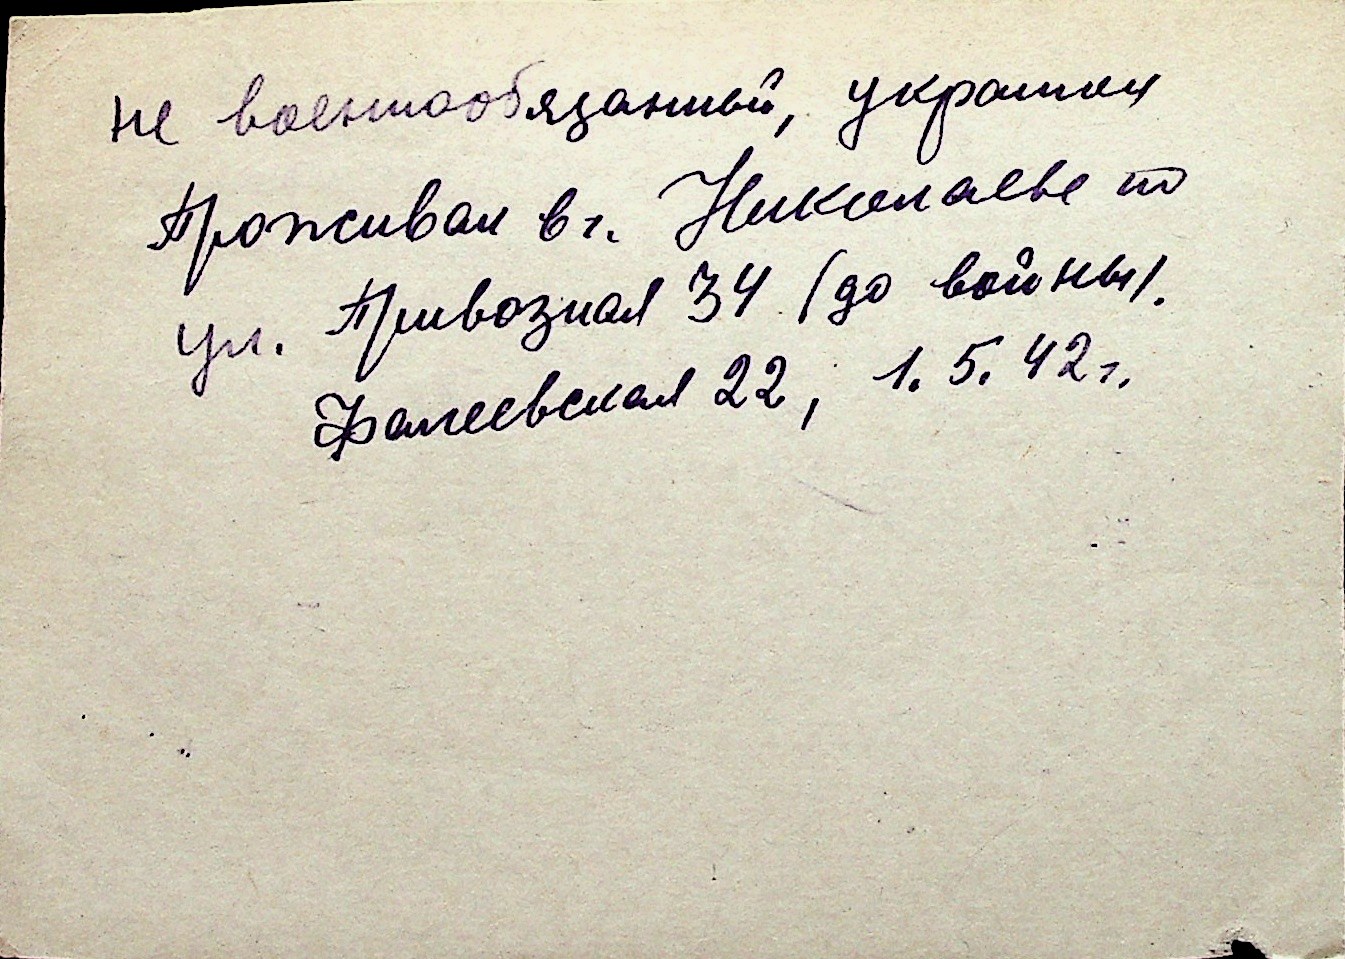 не военнообязанный, украинец
Проживал в г. Николаеве по
ул. Привозная 34 (до войны).
Фалеевская 22, 1.5.42г.